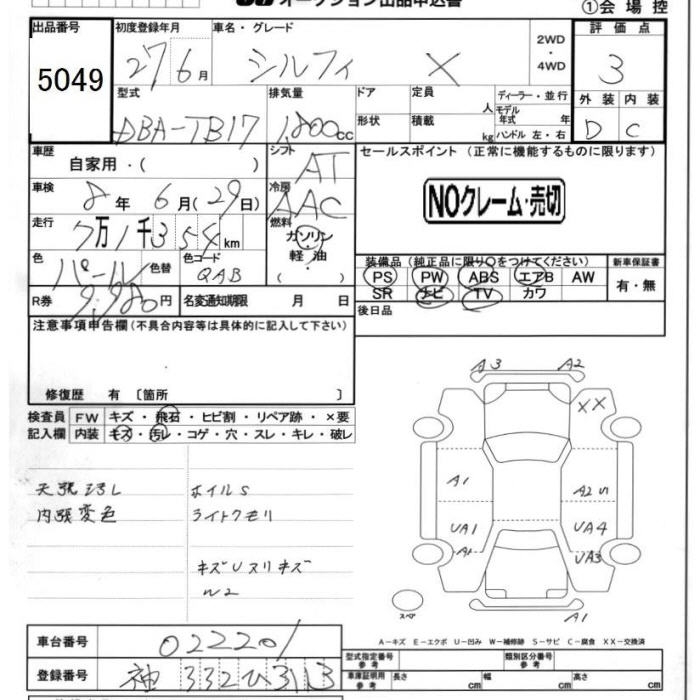 オークション出品申込書
①会場控
出品番号
5049
初度登録年月
27 6月
車名・グレード
シルフィ X
2WD
・
4WD
評価点
3
外装 内装
D C
型式
DBA-TB17
排気量
1,800cc
ドア
定員
人
ディーラー・並行
モデル年式 年
形状
積載
kg
ハンドル 左・右
車歴
自家用・( )
シフト
AT
セールスポイント (正常に機能するものに限ります)
NOクレーム・売切
車検
8年 6月(29日)
冷房
AAC
走行
7万1千354km
燃料
ガソリン
・
軽・油
( )
色
パール
色替
色コード
QAB
装備品(純正品に限り○をつけてください)
PS PW ABS エアB AW
SR ナビ TV カワ
新車保証書
有・無
R券
9,980円
名変通知期限 月 日
後日品
注意事項申告欄(不具合内容等は具体的に記入して下さい)
修復歴 有 〔箇所 〕
検査員記入欄
FW キズ・飛石・ヒビ割・リペア跡・×要
内装 キズ・汚レ・コゲ・穴・スレ・キレ・破レ
天張汚レ
内張変色
ホイルS
ライトクモリ
キズUスリキズ
W2
A3 A2
XX
A1
A2S
UA1
UA4
A1
UA3
A1
スペア
A-キズ E-エクボ U-凹み W-補修跡 S-サビ C-腐食 XX-交換済
車台番号
022201
型式指定番号
参考
類別区分番号
参考
登録番号
神 332ひ313
車庫証明用
参考
長さ cm
幅 cm
高さ cm